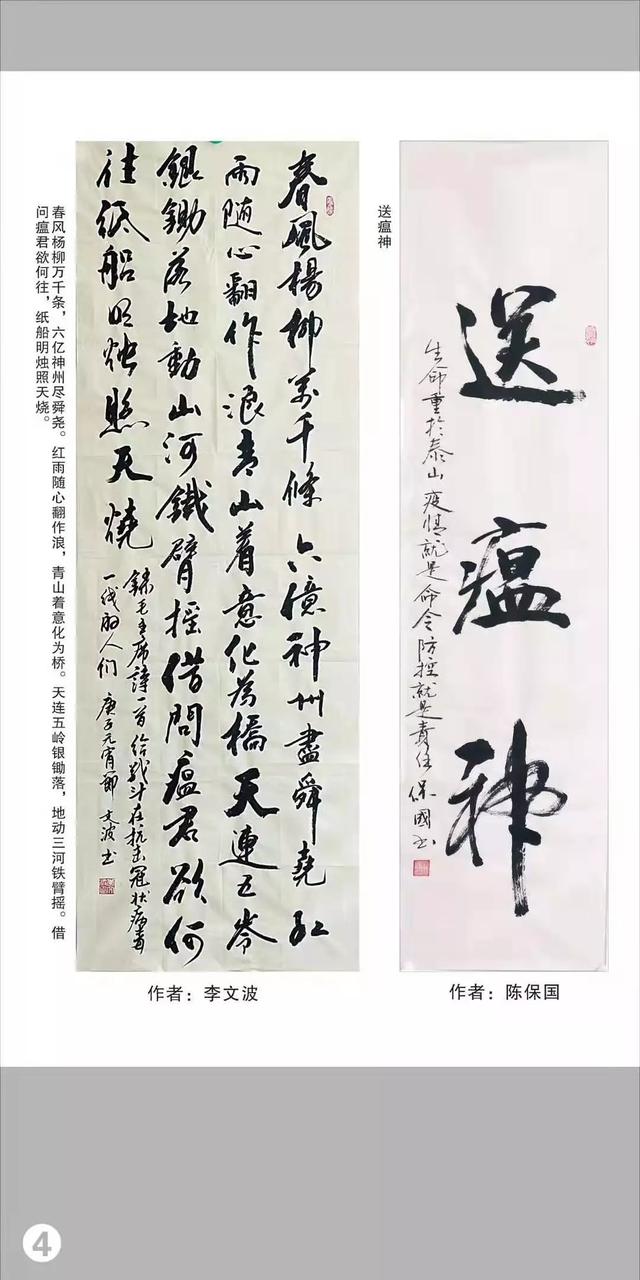 送瘟神
生命重於泰山 疫情就是命令 防控就是责任 保國书
作者：陈保国
送瘟神
春風楊柳萬千條六億神州盡舜堯红
雨随心翻作浪青山着意化為橋天連五岺
銀鋤落地動山河鐵臂摇借問瘟君欲何
往纸船明烛照天燒
錄毛主席詩一首给战斗在抗击冠状病毒
一线的人们 庚子元宵節 文波书
作者：李文波
春风杨柳万千条，六亿神州尽舜尧。红雨随心翻作浪，青山着意化为桥。天连五岭银锄落，地动三河铁臂摇。借
问瘟君欲何往，纸船明烛照天烧。
4